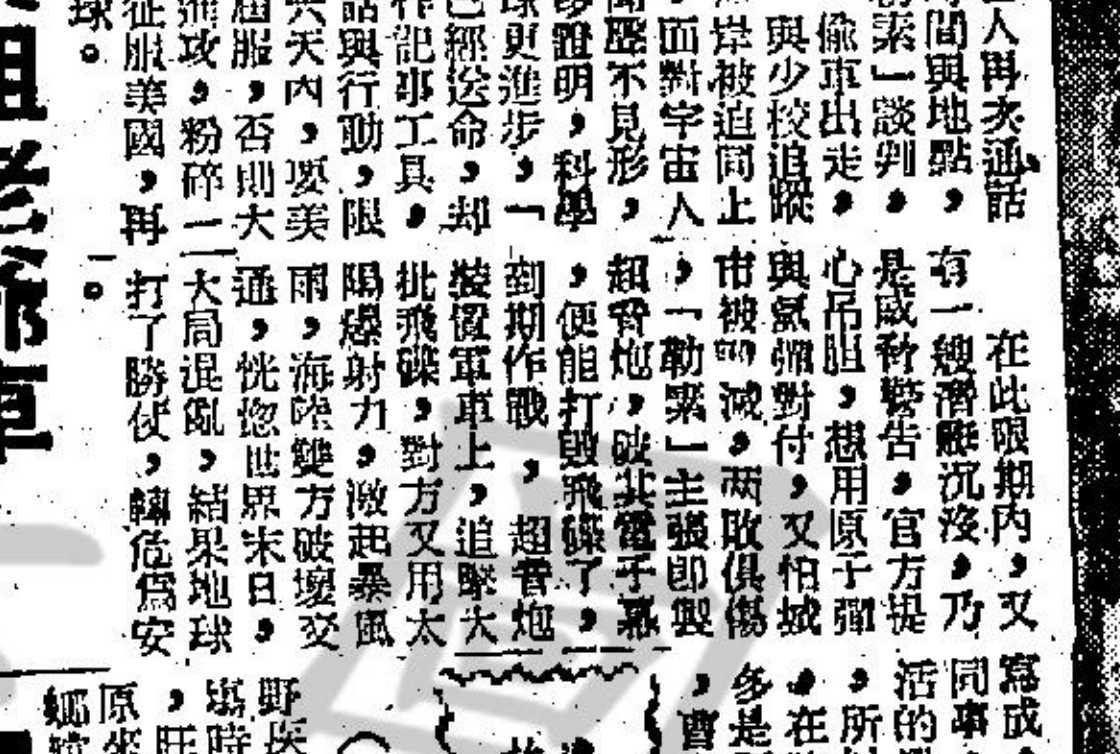 人再次通話
時間與地點，
索」談判。
偷車出走，
與少校追蹤
岸被迫同上
面對宇宙人
聲不見形，
證明，科學
球更進步，「
已經送命，却
作記事工具。
話與行動，限
六天內，要美
屈服，否則大
進攻，粉碎一
征服美國，再
球。
在此限期內，又
有一艘潛艇沉沒，乃
是威脅警告，官方提
心吊胆，想用原子彈
與氣彈對付，又怕城
市被毀滅，两敗俱傷
，「勒索」主張即製
超音炮，破其電子幕
，便能打毀飛碟了，
到期作戰，超音炮
裝置軍車上，追踪大
批飛碟，對方又用太
陽爆射力，激起暴風
雨，海陸雙方破壞交
通，恍惚世界末日，
大局混亂，結果地球
打了勝仗，轉危爲安
。
寫成
同事
活的
，所
在
多是
，曹
野
時
，旺
原來
鄉